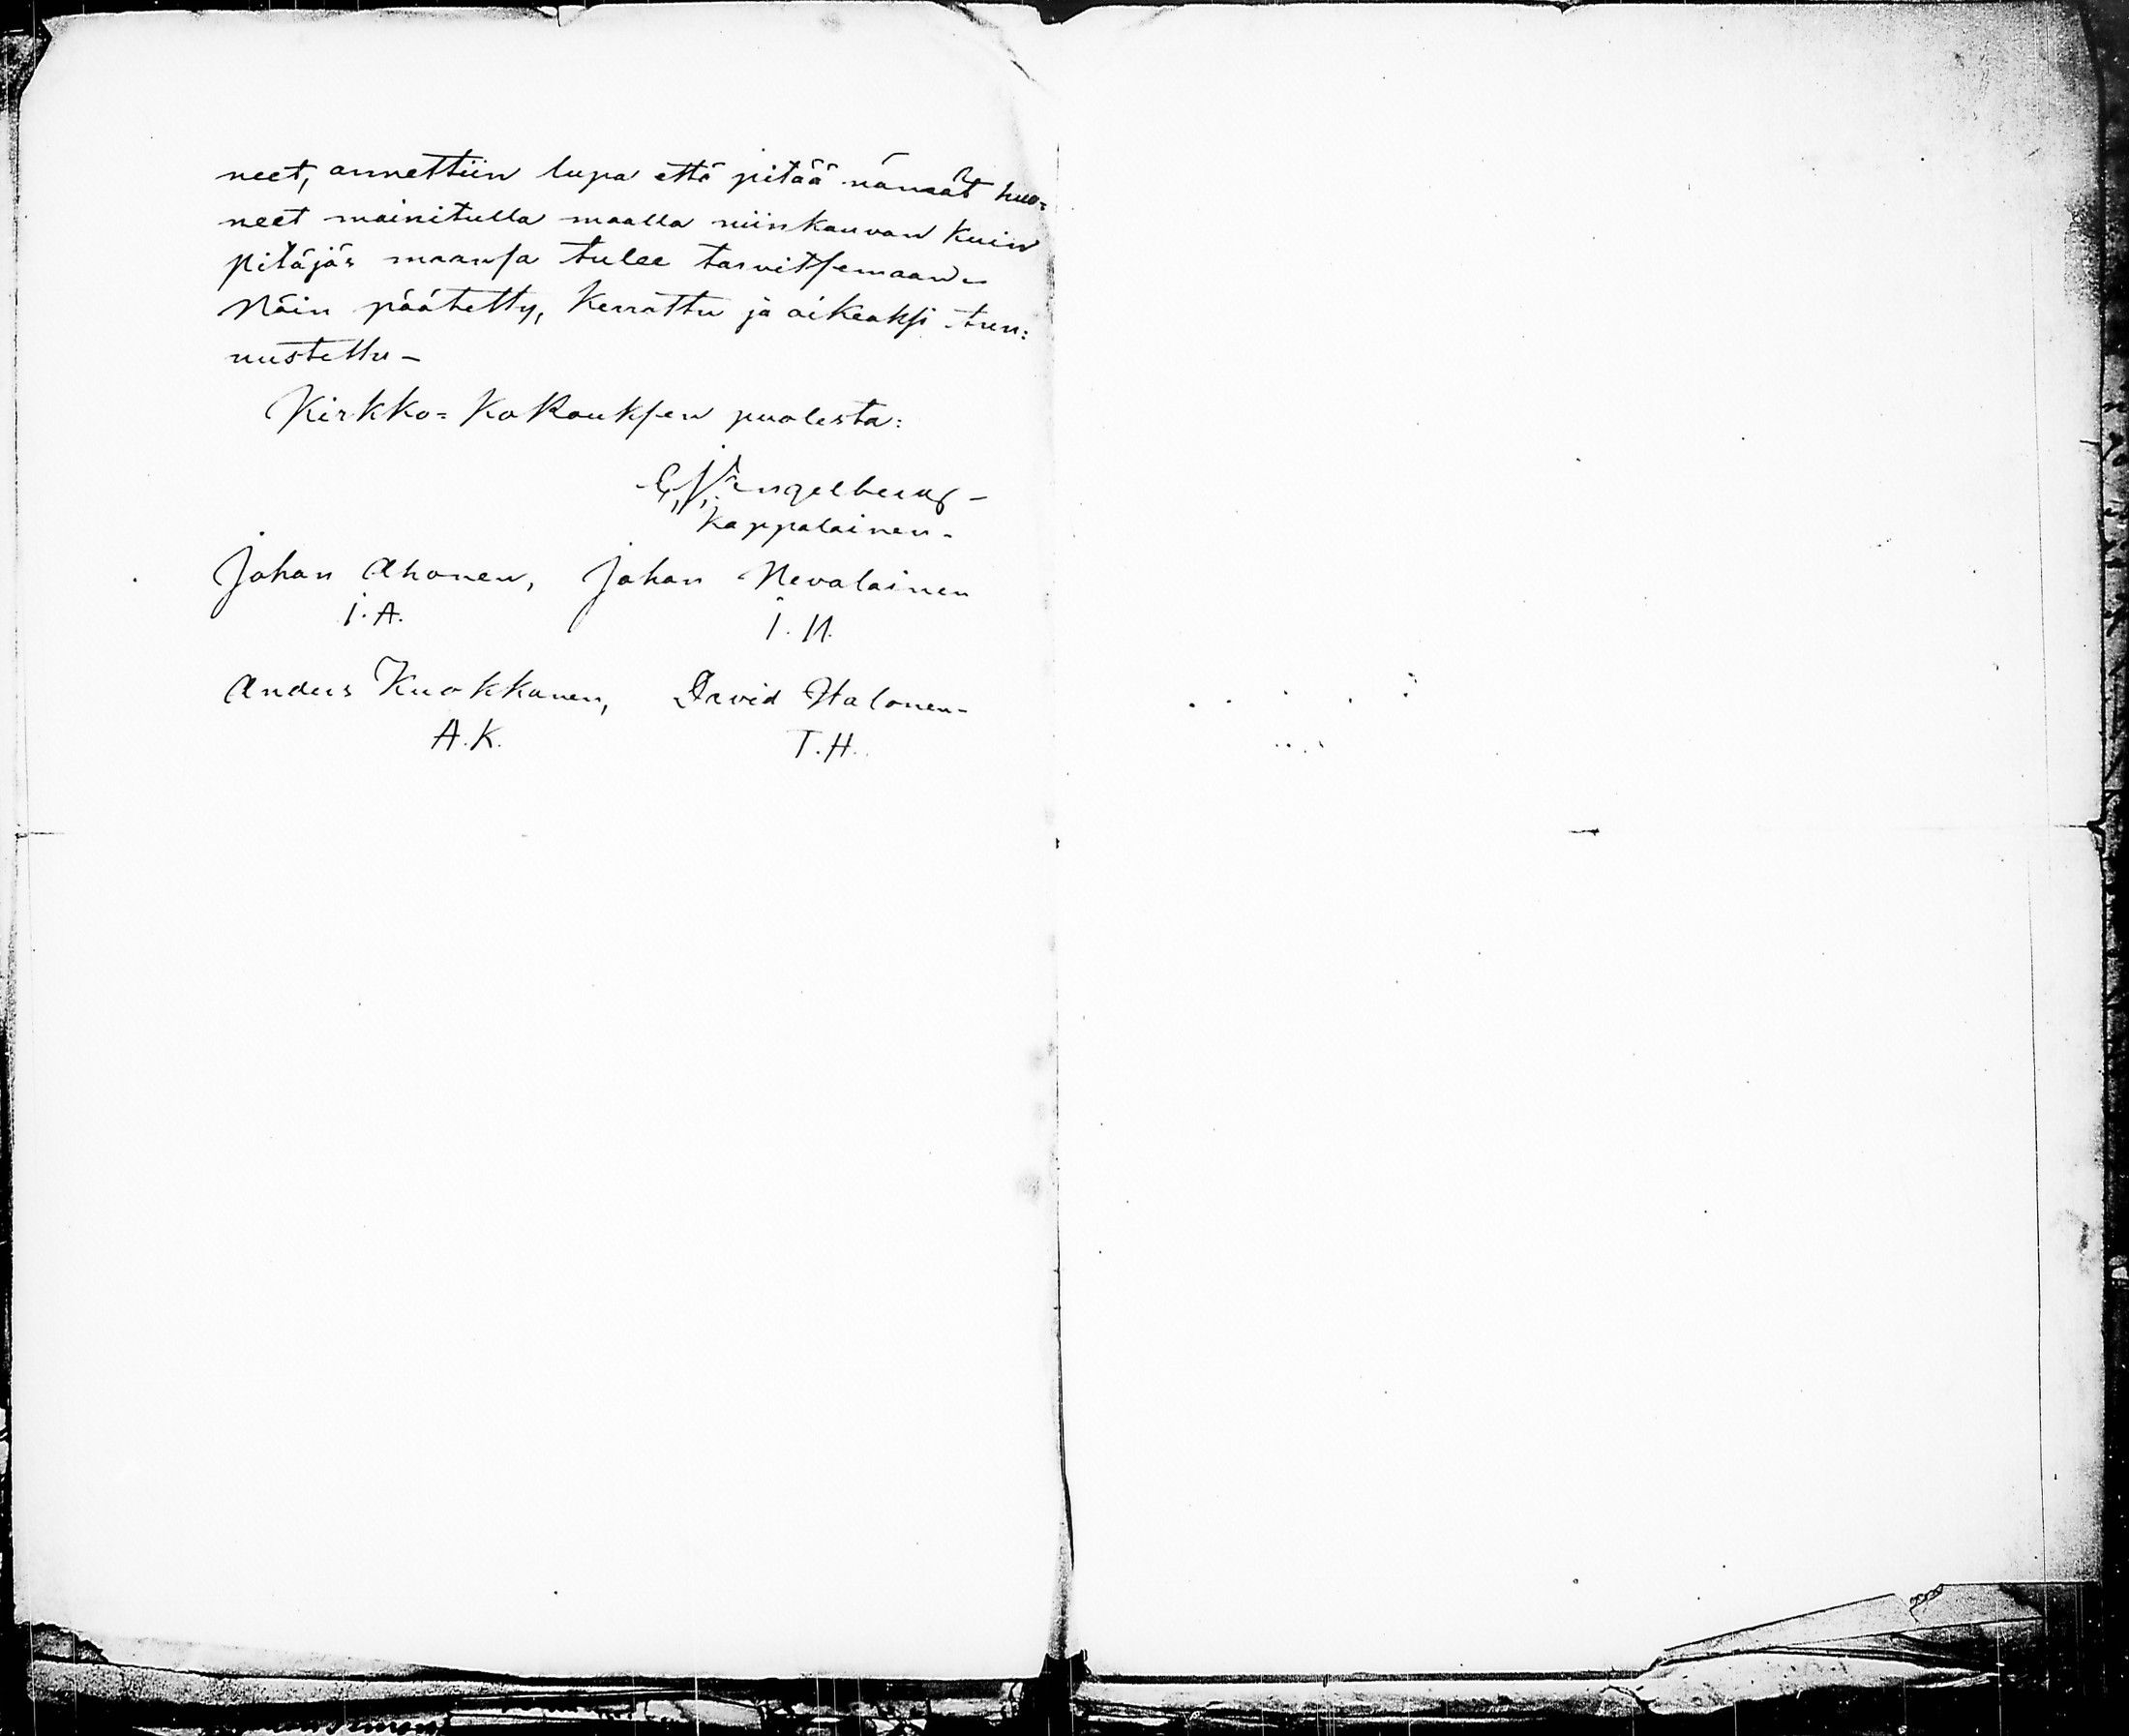 neet, annettiin lupa että pitää nämät huo=
neet mainitulla maalla niinkauvan kuin
pitäjäs maansa tulee tarvitsemaan.
Näin päätetty, kerrattu ja oikeaksi tun=
nustettu –
Kirkko=Kokouksen puolesta:
Engelberg –
Kappalainen.
Johan Ahonen, Johan Nevalainen
I.A. I.N.
Anders Kuokkanen, David Halonen.
A.K. T.H.